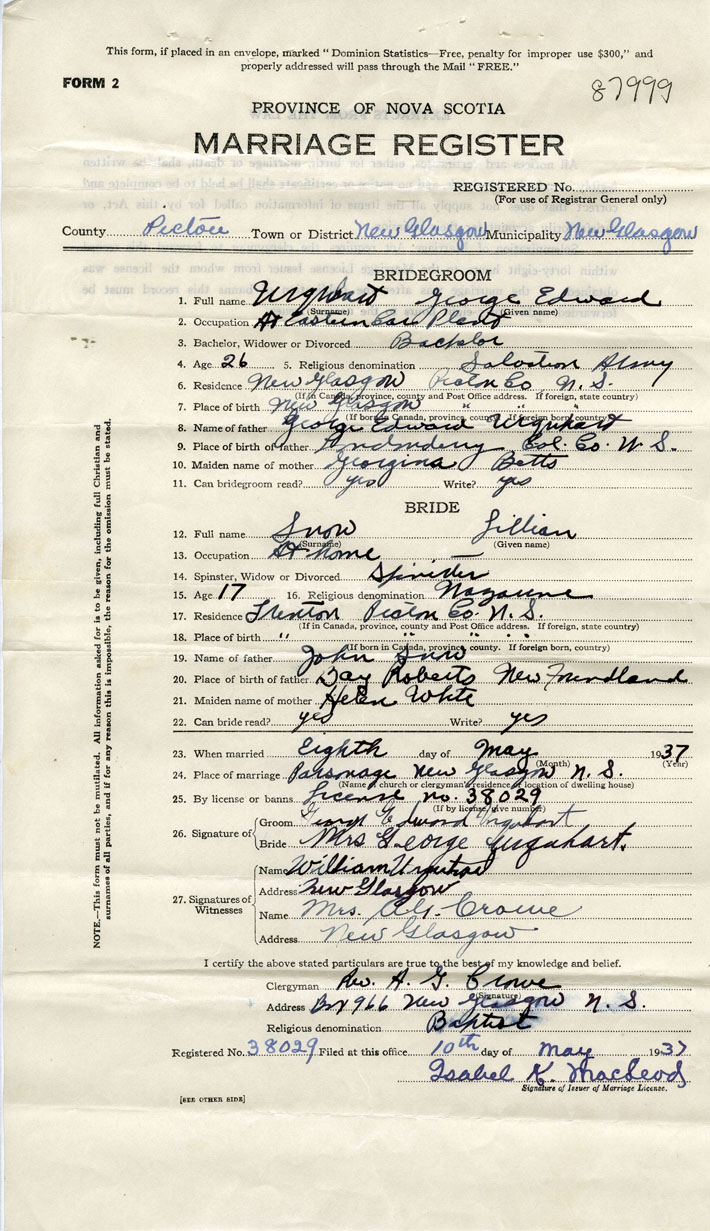 This form, if placed in an envelope, marked "Dominion Statistics—Free, penalty for improper use $300," and
properly addressed will pass through the Mail "FREE."
FORM 2
87999
PROVINCE OF NOVA SCOTIA
MARRIAGE REGISTER
REGISTERED No.
(For use of Registrar General only)
County Pictou Town or District New Glasgow Municipality New Glasgow
BRIDEGROOM
1. Full name Urquhart George Edward
(Surname) (Given name)
2. Occupation At Eastern Car Plant
3. Bachelor, Widower or Divorced Bachelor
4. Age 26 5. Religious denomination Salvation Army
6. Residence New Glasgow Pictou Co. N. S.
(If in Canada, province, county and Post Office address. If foreign, state county)
7. Place of birth New Glasgow " "
(If born in Canada, province, county. If foreign born, country)
8. Name of father George Edward Urquhart
9. Place of birth of father Londonderry Col. Co. N. S.
10. Maiden name of mother Georgina Betts
11. Can bridegroom read? yes Write? yes
BRIDE
12. Full name Snow Lillian
(Surname) (Given name)
13. Occupation At home
14. Spinster, Widow or Divorced Spinster
15. Age 17 16. Religious denomination Nazarene
17. Residence Trenton Pictou Co. N. S.
(If in Canada, province, county and Post Office address. If foreign, state county)
18. Place of birth " " " "
(If born in Canada, province, county. If foreign born, country)
19. Name of father John Snow
20. Place of birth of father Bay Roberts New Foundland
21. Maiden name of mother Helen White
22. Can bride read? yes Write? yes
23. When married Eighth day of May 1937
(Month) (Year)
24. Place of marriage Parsonage New Glasgow N. S.
(Name of church or clergyman's residence or location of dwelling house)
25. By license or banns License no. 38029
(If by license, give number)
26. Signature of
Groom George Edward Urquhart
Bride Mrs George Urquhart.
27. Signatures of Witnesses
Name William Urquhart
Address New Glasgow
Name Mrs. A. G. Crowe
Address New Glasgow
I certify the above stated particulars are true to the best of my knowledge and belief.
Clergyman Rev. A. G. Crowe
(Signature)
Address Box 966 New Glasgow N. S.
Religious denomination Baptist
Registered No. 38029 Filed at this office 10th day of May 1937
Isabel K. MacLeod
Signature of Issuer of Marriage License.
[SEE OTHER SIDE]
NOTE.—This form must not be mutilated. All information asked for is to be given, including full Christian and
surnames of all parties, and if for any reason this is impossible, the reason for the omission must be stated.